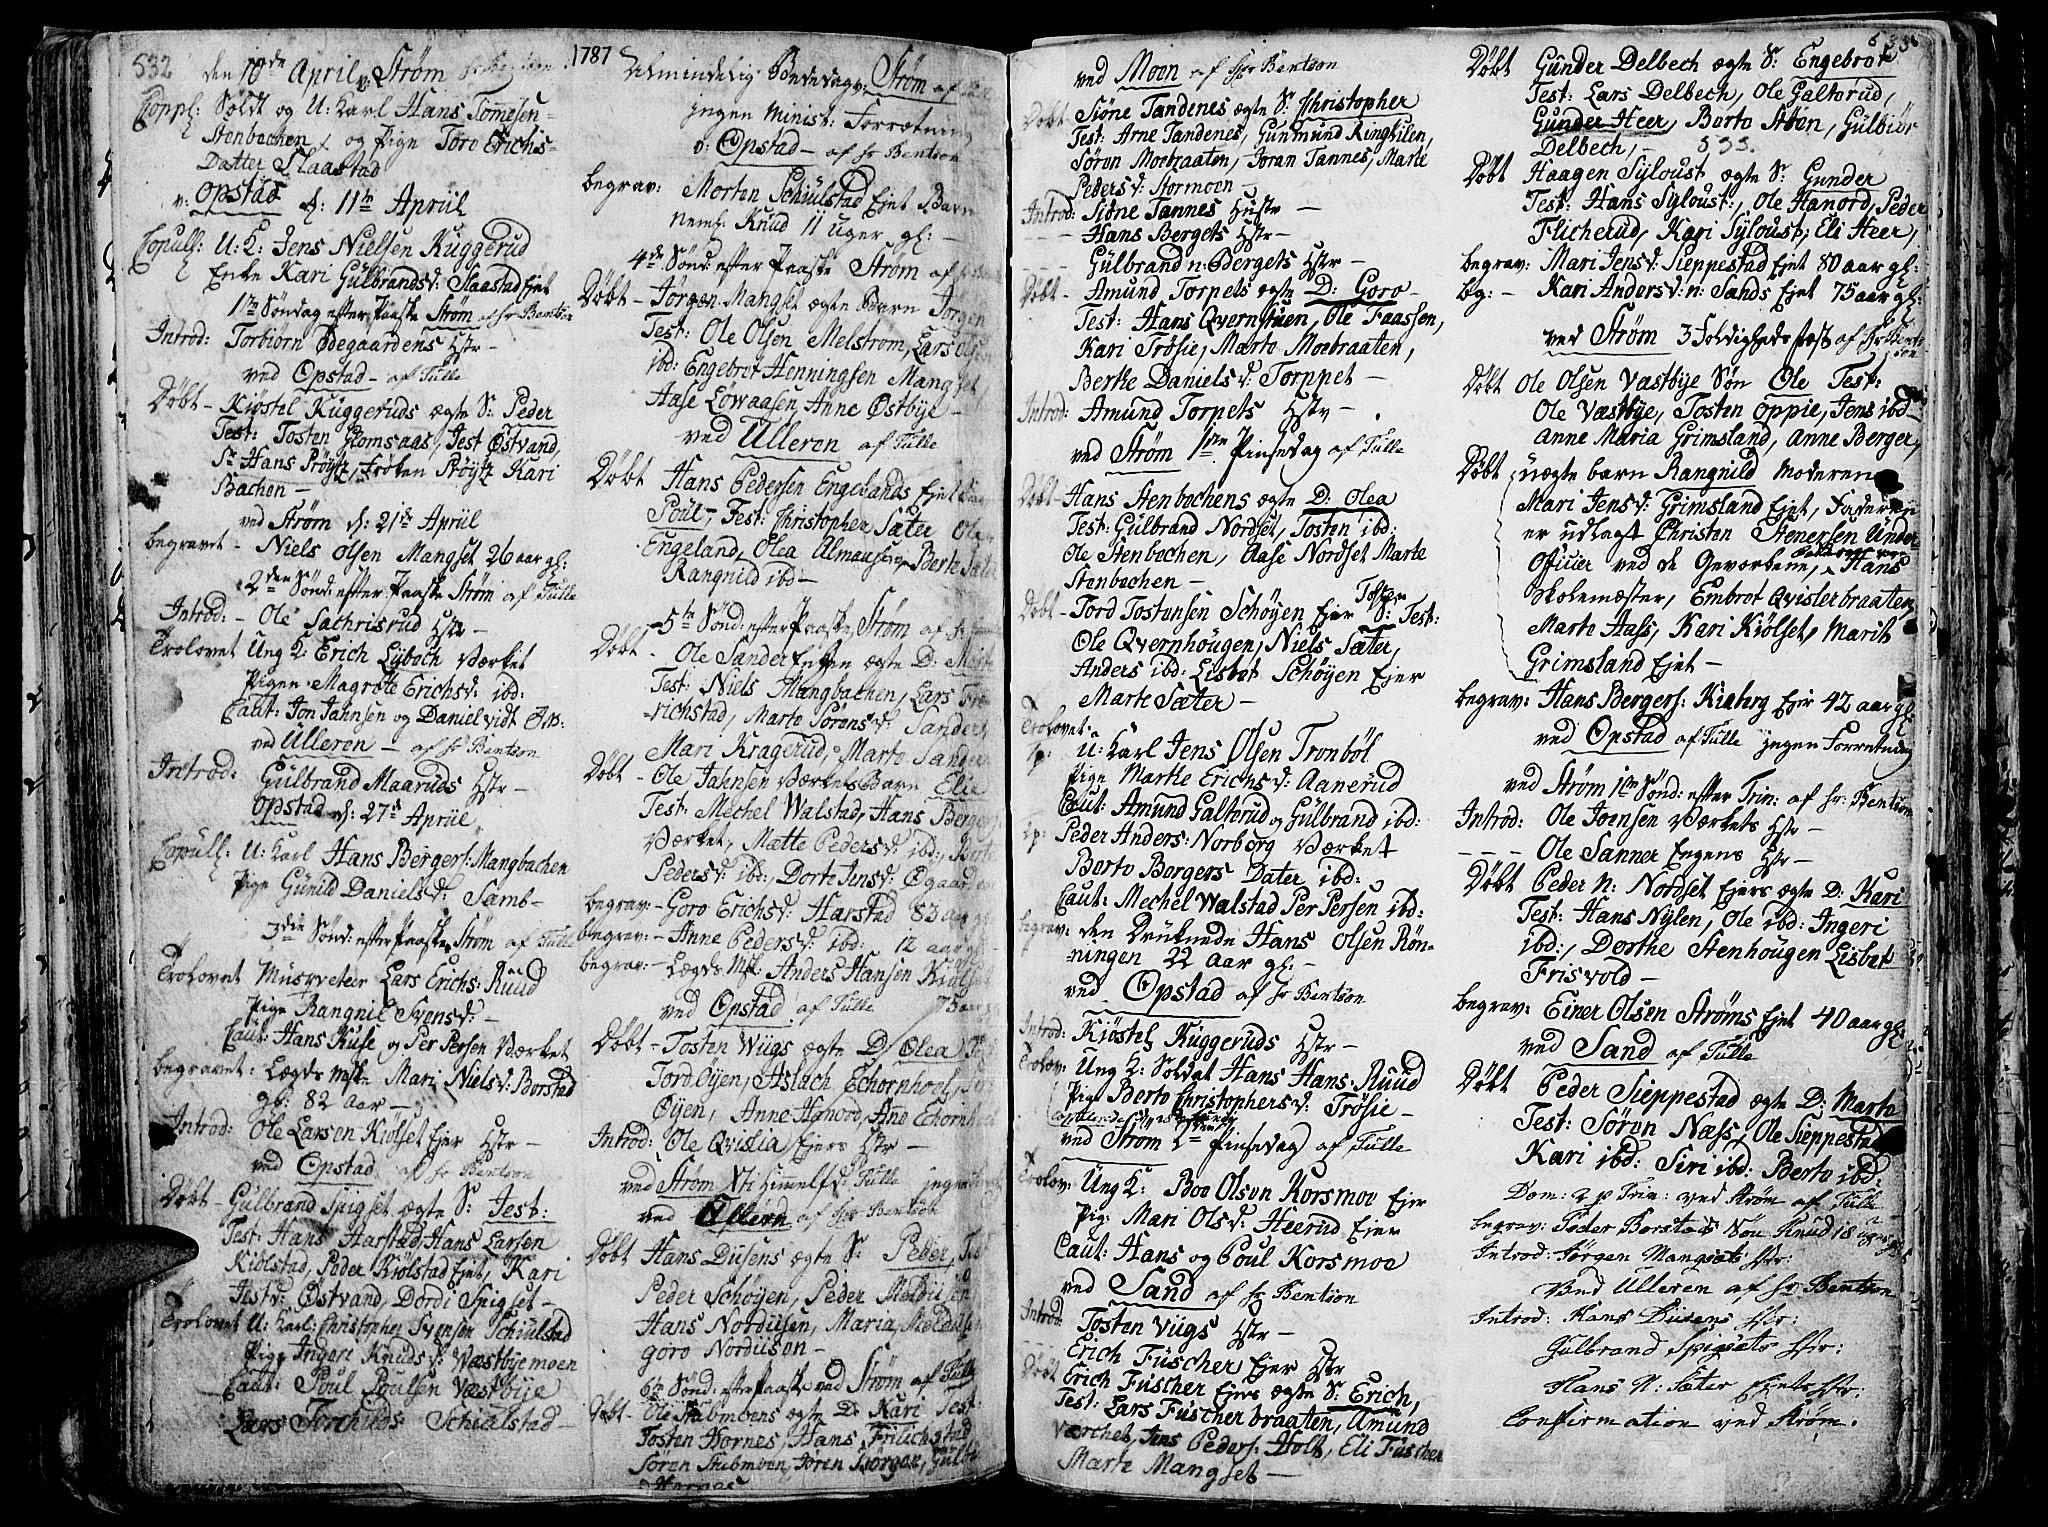 532
1787
den 10de April v. Strøm
Coppl: Soldt og U: Karl Hans Tomesen
Stenbachen og Pige Toro Erichs-
Datter Slaastad
v: Opstad d: 11te Apriil
Copull: U: K: Jens Nielsen Kuggerud
Enke Kari Gulbrandsd: Slaastad Ejet
1te Søndag efter Paaske Strøm af Hr Bentson
Introd: Torbiørn Ødegaardens Hstr -
ved Opstad - af Tulle
Døbt - Kiøstel Kuggeruds ægte S: Peder
Test: Tosten Glomsaas, Jest Østvand,
Sr Hans Prøytz, Frøken Prøytz Kari
Bachen -
ved Strøm d: 21de Apriil
begravet - Niels Olsen Mangset 26 aar gl:
2den Sønd: efter Paaske Strøm af Tulle
Introd: - Ole Sachrisrud Hstr -
Trolovet Ung K: Erich Lybech Værket
Pigen Magrete Erichsd: ibd:
Caut: Jon Jahnsen og Daniel vidt
ved Ulleren - af Hr Bentson
Introd: Gulbrand Maaruds Hstr -
Opstad d: 27de Apriil
Copull: U: Karl Hans Bergers: Mangbachen
Pige Gunild Danielsd: Samb-
3die Sønd: efter Paaske Strøm af Tulle
Trolovet Musqveteer Lars Erichs: Ruud
Pige Rangnil Svensd: -
Caut: Hans Kuse og Per Persen Værket
begravet: Lægds Mske Mari Nielsd: Borstad
gl: 82 aar -
Introd: Ole Larsen Kiølset Ejer Hstr -
ved Opstad af Hr Bentson
Døbt - Gulbrand Spigset ægte S: Jest:
Test: Hans Harstad, Hans Larsen
Kiølstad, Peder Kiølstad Ejet, Kari
Jestsd: Østvand, Dordi Spigset -
Trolovet U: Karl: Christopher Svensen Schiulstad
Pige Ingeri Knudsd: Væstbyemoen
Caut: Poul Poulsen Væstbye
Lars Torchilds: Schiulstad -
Almindelig Bededag v: Strøm af
ingen Minist: Forrætning
v: Opstad - af Hr Bentson
begrav: Morten Schiulstad Ejet Barn
neml: Knud 11 uger gl: -
4de Sønd: efter Paaske Strøm af Hr
Døbt - Jørgen Mangset ægte Barn Jørgen
Test: Ole Olsen Melstrom, Lars Olsen
ibd: Engebret Henningsen Mangset
Aase Løwaasen, Anne Østbye -
ved Ulleren af Tulle
Døbt Hans Pedersen Engelands Ejet
Poul, Test: Christopher Sæter, Ole
Engeland, Olea Almaasen, Berte Sæter
Rangnild ibd -
5te Sønd: efter Paaske Strøm af Hr
Døbt - Ole Sander Engen ægte D: Marte
Test: Niels Mangbachen, Lars Fre-
richstad, Marte Sørensd: Sander
Mari Kragerud, Marte Sanderen
Døbt - Ole Jahnsen Værket Barn Elie
Test: Mechel Walstad, Hans Berger
Værket, Mætte Pedersd: ibd:, Berte
Pedersd: ibd:, Dorte Jensd: Øgaarden
begrav: - Goro Erichsd: Harstad 83 aar gl
begrav: - Anne Pedersd: ibd: 12 aar gl
begrav: - Lægds M: Anders Hansen Kiølset
ved Opstad af Tulle 73 aar
Døbt - Tosten Wiigs ægte D: Olea
Tord Øijen, Aslach Echornhoel,
Øijen, Anne Hanord, And Echornhoel
Introd: Ole Qvislia Ejers Hstr -
ved Strøm Xti Himmelf: Tulle ingen
ved Ulleren af Hr Bentson
Døbt Hans Dusens ægte S: Peder,
Peder Schøyen, Peder Meldiisen
Hans Nordiisen, Maria Meldiisen
goro Nordiisen -
6te Sønd: efter Paaske ved Strøm af Tulle
Døbt - Ole Stubmoens ægte D: Kari Test:
Tosten Hornes, Hans Frilichstad
Søren Stubmoen, Joren Torgae, Gulb
Hornes
ved Moen af Hr Bentson
Døbt Siøne Tandenes ægte S: Christopher
Test: Arne Tandenes, Gunmund Kinghilen,
Søren Moebraaten, Joran Tannes, Marte
Pedersd: Stormoen -
Introd: Siøne Tannes Hustr -
Hans Bergets Hstr -
Gulbrand n: Bergets Hstr -
Døbt - Amund Torpets ægte D: Goro -
Test: Hans Qvernstuen, Ole Faassen,
Kari Trøsie, Marte Moebraaten,
Berthe Danielsd: Torppet -
Introd: Amund Torpets Hstr -
ved Strøm 1ste Pinsedag af Tulle
Døbt - Hans Stenbachens ægte D: Olea
Test: Gulbrand Nordset, Tosten ibd:
Ole Stenbachen, Aase Nordset Marte
Stenbachen -
Døbt - Tord Tostensen Schøyen Ejer S: Tosten Test:
Ole Qvernhougen, Niels Sæter,
Anders ibd: Lisbet Schøyen Ejer
Marte Sæter -
Trolovet
U: Karl Jens Olsen Tronbøl
Pige Marthe Erichsd: Aanerud
Caut: Amund Galterud og Gulbrand ibd:
Peder Anders: Norborg Værket
Berto Bergers Dater ibd:
Caut: Mechel Walstad Per Persen ibd:
begrav: den Druknede Hans Olsen Røn-
ningen 22 aar gl: -
ved Opstad af Hr Bentson
Introd: Kiøstel Kuggeruds Hstr -
Trolov: Ung K: Soldat Hans Hans: Ruud
Pige Berto Christophersd: Trøsie -
ved Strøm 2den Pinsedag af Tulle
Trolov: Ung K: Boo Olsen Korsmoe Ejer
Pig: Mari Olsd: Heerud Ejer
Caut: Hans og Poul Korsmoe
ved Sand af Hr Bentson
Introd: Tosten Viigs Hstr -
Erich Fuscher Ejer Hstr
Døbt Erich Fuscher Ejers ægte S: Erich,
Test: Lars Fuscherbraaten, Amund
Værchet, Jens Peders: Holt, Eli Fuscher
Marte Mangset -
Døbt Gunder Delbech ægte S: Engebret
Test: Lars Delbech, Ole Galterud,
Gunder Heer, Berto Steen, Gulbiør
Delbech, - 533.
Døbt Haagen Syloust ægte S: Gunder
Test: Hans Syloust, Ole Hanord, Peder
Flicherud, Kari Syloust, Eli Heer,
begrav: Mari Jensd: Sieppestad Ejet 80 aar gl:
bg: - Kari Andersd: n: Sands Ejet 75 aar gl:
ved Strøm 3foldigheds Fest af Hr Bent-
son
Døbt Ole Olsen Væstbye Søn Ole Test:
Ole Væstbye, Tosten Oppie, Jens ibd
Anne Maria Grimsland, Anne Berger,
Døbt uægte barn Rangnild Moderen
Mari Jensd: Grimsland Ejet, Faderen
er udlagt Christen Stenersen Under
Officier ved de Geworbene, Hans
Skolemester, Embret Qvislerbraaten
Marte Aass, Kari Kiølset, Marit
Grimsland Ejet -
begrav: Hans Bergers: Kiaberg Ejer 42 aar gl
ved Opstad af Tulle ingen Forretning
ved Strøm 1te Sønd: efter Trin: af Hr: Bentson
Introd: Ole Joensen Værkets Hstr -
Ole Sanner Engens Hstr -
Døbt Peder n: Nordset Ejers ægte D: Kari
Test: Hans Nylen, Ole ibd: Ingeri
ibd:, Dorthe Stenhougen Lisbet
Frisvold -
begrav: Einer Olsen Strøms Ejet 40 aar gl
ved Sand af Tulle
Døbt Peder Sieppestad ægte D: Marte
Test: Søren Næss, Ole Sieppestad
Kari ibd: Siri ibd: Berto ibd:
Dom: 2 p Trin: ved Strøm af Tulle
begrav: Peder Borstads Søn Knud 18 uger gl:
Introd: Jørgen Mangsets Hstr:
Ved Ulleren af Hr Bentson
Introd: Hans Dusens Hstr:
Gulbrand Spigsets Hstr:
Hans N: Sæter Ejets Hstr:
Confirmation ved Strøm.